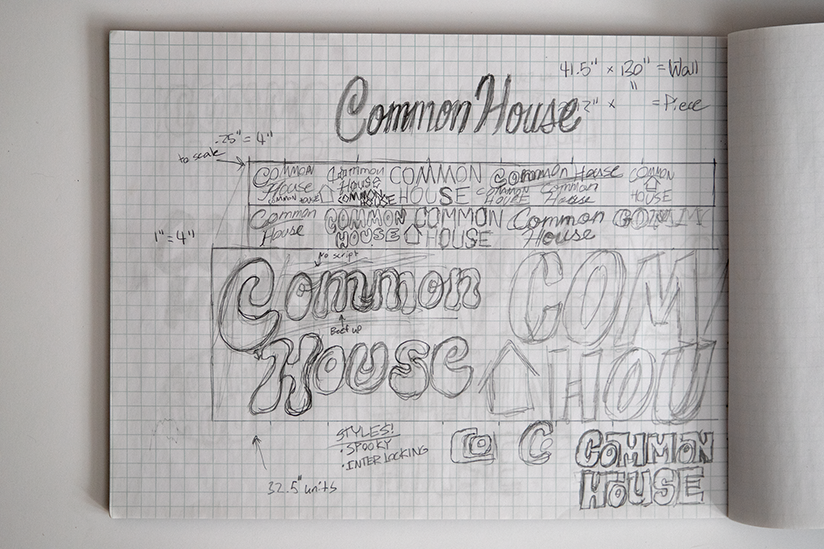 41.5" × 130" = Wall
" × " = Piece
Common House
.25" = 4"
to scale
Common House
Common House
COMMON HOUSE
Common House
COMMON HOUSE
COMMON HOUSE
COMMON HOUSE
COMMON HOUSE
Common House
COMMON HOUSE
Common House
COMMON HOUSE
COMMON HOUSE
Common House
COMM
1" = 4"
no script
Common
House
Beef up
COM
HOU
STYLES!
• SPOOKY
• INTERLOCKING
CO
C
COMMON
HOUSE
32.5" units